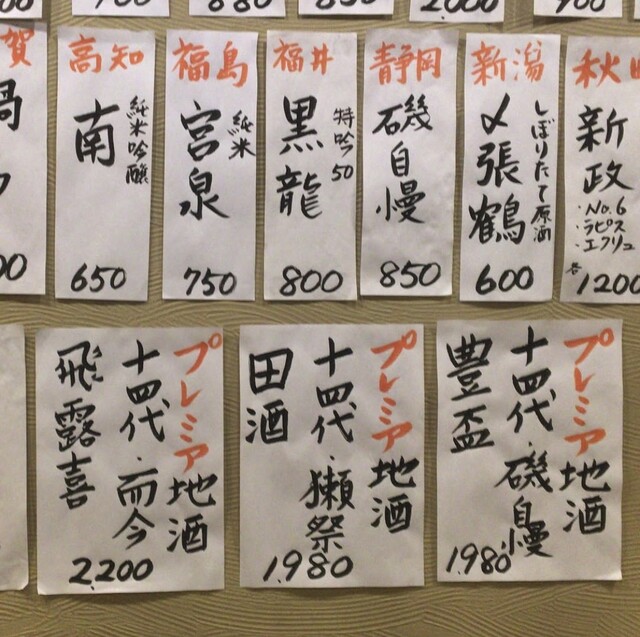 2.000
880
秋田
新政
・No.6
・ラピス
・エクリュ
各1200
新潟
しぼりたて原酒
〆張鶴
600
静岡
磯自慢
850
福井
特吟50
黒龍
800
福島
純米
宮泉
750
高知
純米吟醸
南
650
賀
プレミア地酒
十四代・磯自慢
豊盃
1.980
プレミア地酒
十四代・獺祭
田酒
1.980
プレミア地酒
十四代・而今
飛露喜
2.200